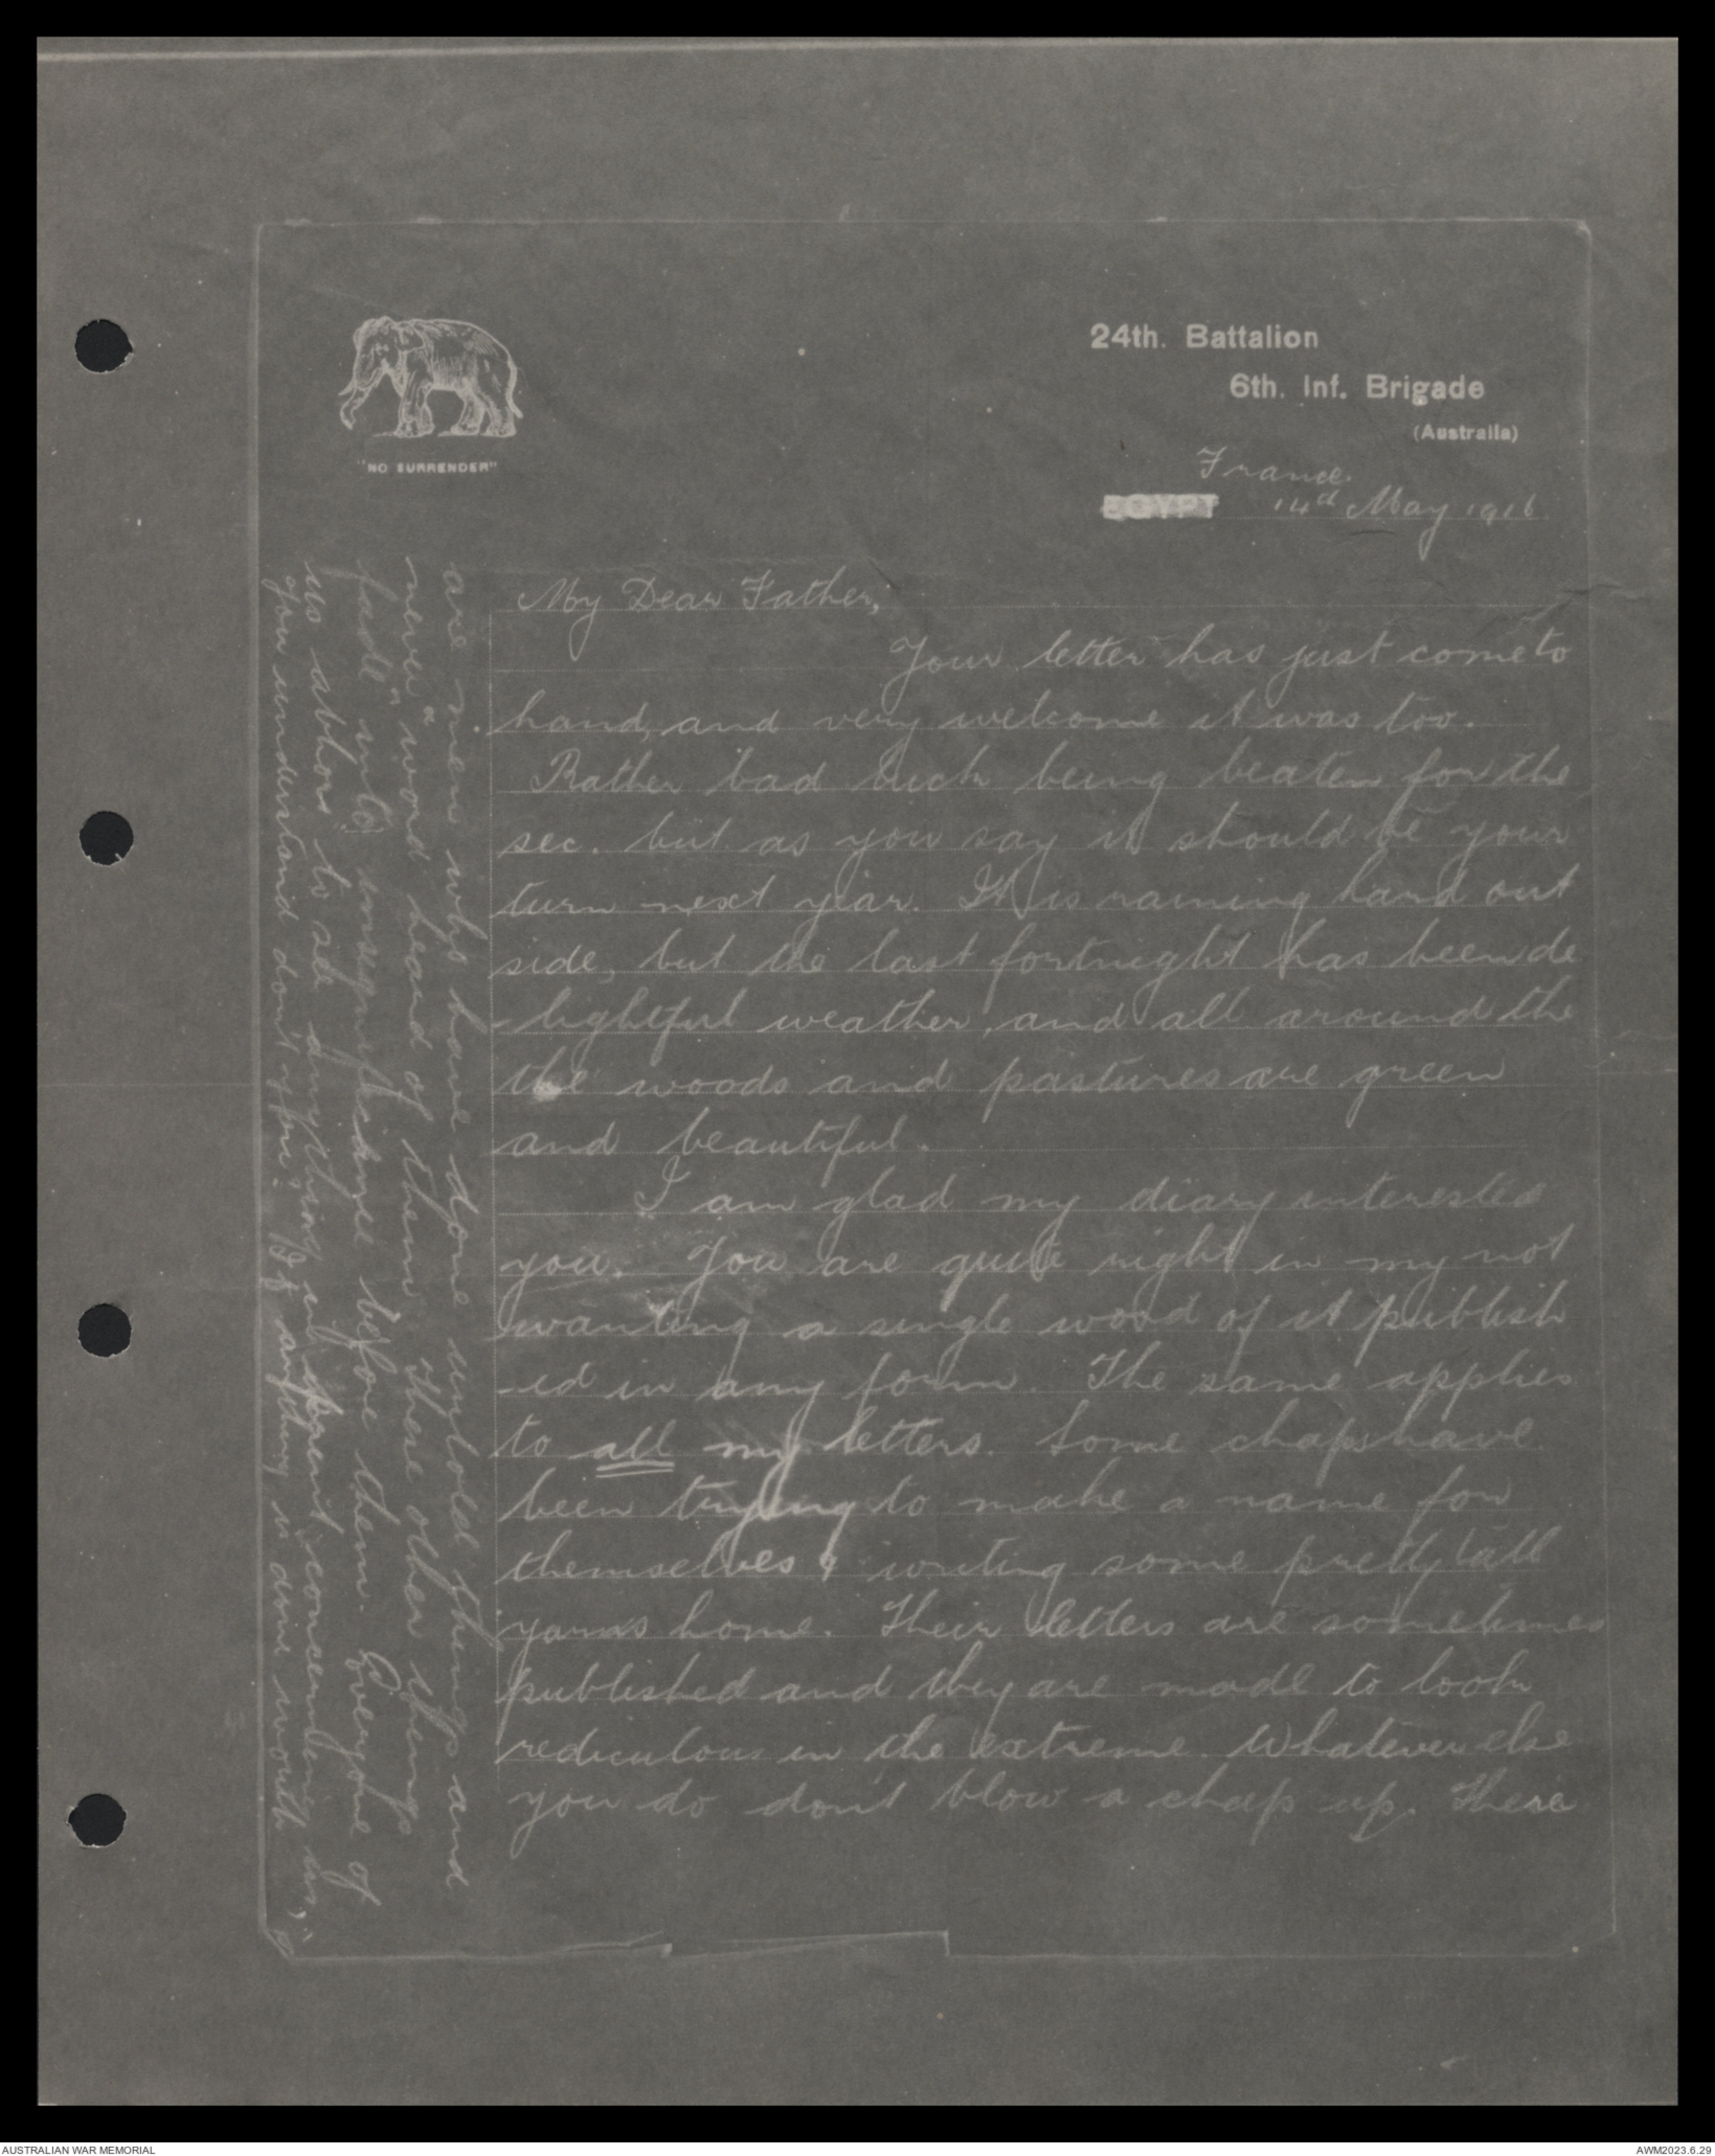 24th. Battalion
6th. Inf. Brigade
(Australia)
"NO SURRENDER"
France.
EGYPT 14th May 1916
My Dear Father,
Your letter has just come to
hand, and very welcome it was too.
Rather bad luck being beaten for the
sec. but as you say it should be your
turn next year. It is raining hard out
side, but the last fortnight has been de
-lightful weather, and all around the
the woods and pastures are green
and beautiful.
I am glad my diary interested
you. You are quite right in my not
wanting a single word of it publish
-ed in any form. The same applies
to all my letters. Some chaps have
been trying to make a name for
themselves & writing some pretty tall
yarns home. Their letters are sometimes
published and they are made to look
rediculous in the extreme. Whatever else
you do don't blow a chap up. There
are men who have done untold things and
never a word heard of them. These other things
fade into insignificance before them. Everyone of
us abhors to see anything in print concerning
you understand don't you? If anything is done worth
AUSTRALIAN WAR MEMORIAL
AWM2023.6.29